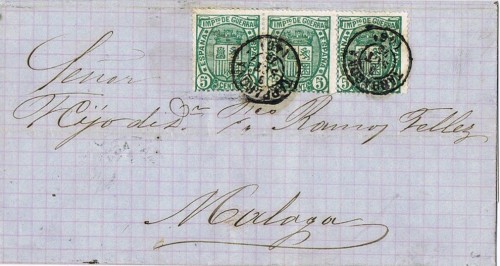 IMPto DE GUERRA IMPto DE GUERRA IMPto DE GUERRA
ESPAÑA ESPAÑA ESPAÑA
5 CENT 5 5 CENT 5 5
Señor
Hijo de Dn Fco Ramos Tellez
Malaga